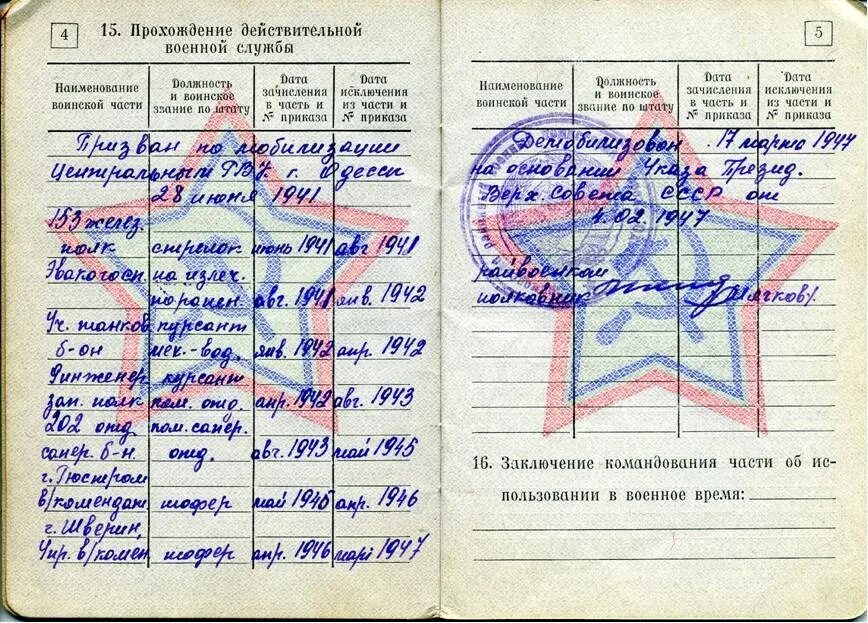 4
15. Прохождение действительной
военной службы
Наименование воинской части
Должность и воинское звание по штату
Дата зачисления в часть и № приказа
Дата исключения из части и № приказа
Призван по мобилизации
Центральным РВК г. Одессы
28 июня 1941
153 желез.
полк стрелок июнь 1941 авг 1941
Эвакогосп. на излеч.
по ранен. авг. 1941 янв. 1942
Уч. танков. курсант
б-он мех.-вод. янв. 1942 апр. 1942
9 инженер. курсант
зап. полк пом. отд. апр. 1942 авг. 1943
202 отд. пом. сапер.
сапер. б-н отд. авг. 1943 май 1945
г. Гюстром
в/комендат. шофер май 1945 апр. 1946
г. Шверин,
Упр. в/комен шофер апр. 1946 март 1947
5
Наименование воинской части
Должность и воинское звание по штату
Дата зачисления в часть и № приказа
Дата исключения из части и № приказа
Демобилизован 17 марта 1947
на основании Указа Презид.
Верх. Совета СССР от
4.02.1947
райвоенком
полковник
16. Заключение командования части об ис-
пользовании в военное время: